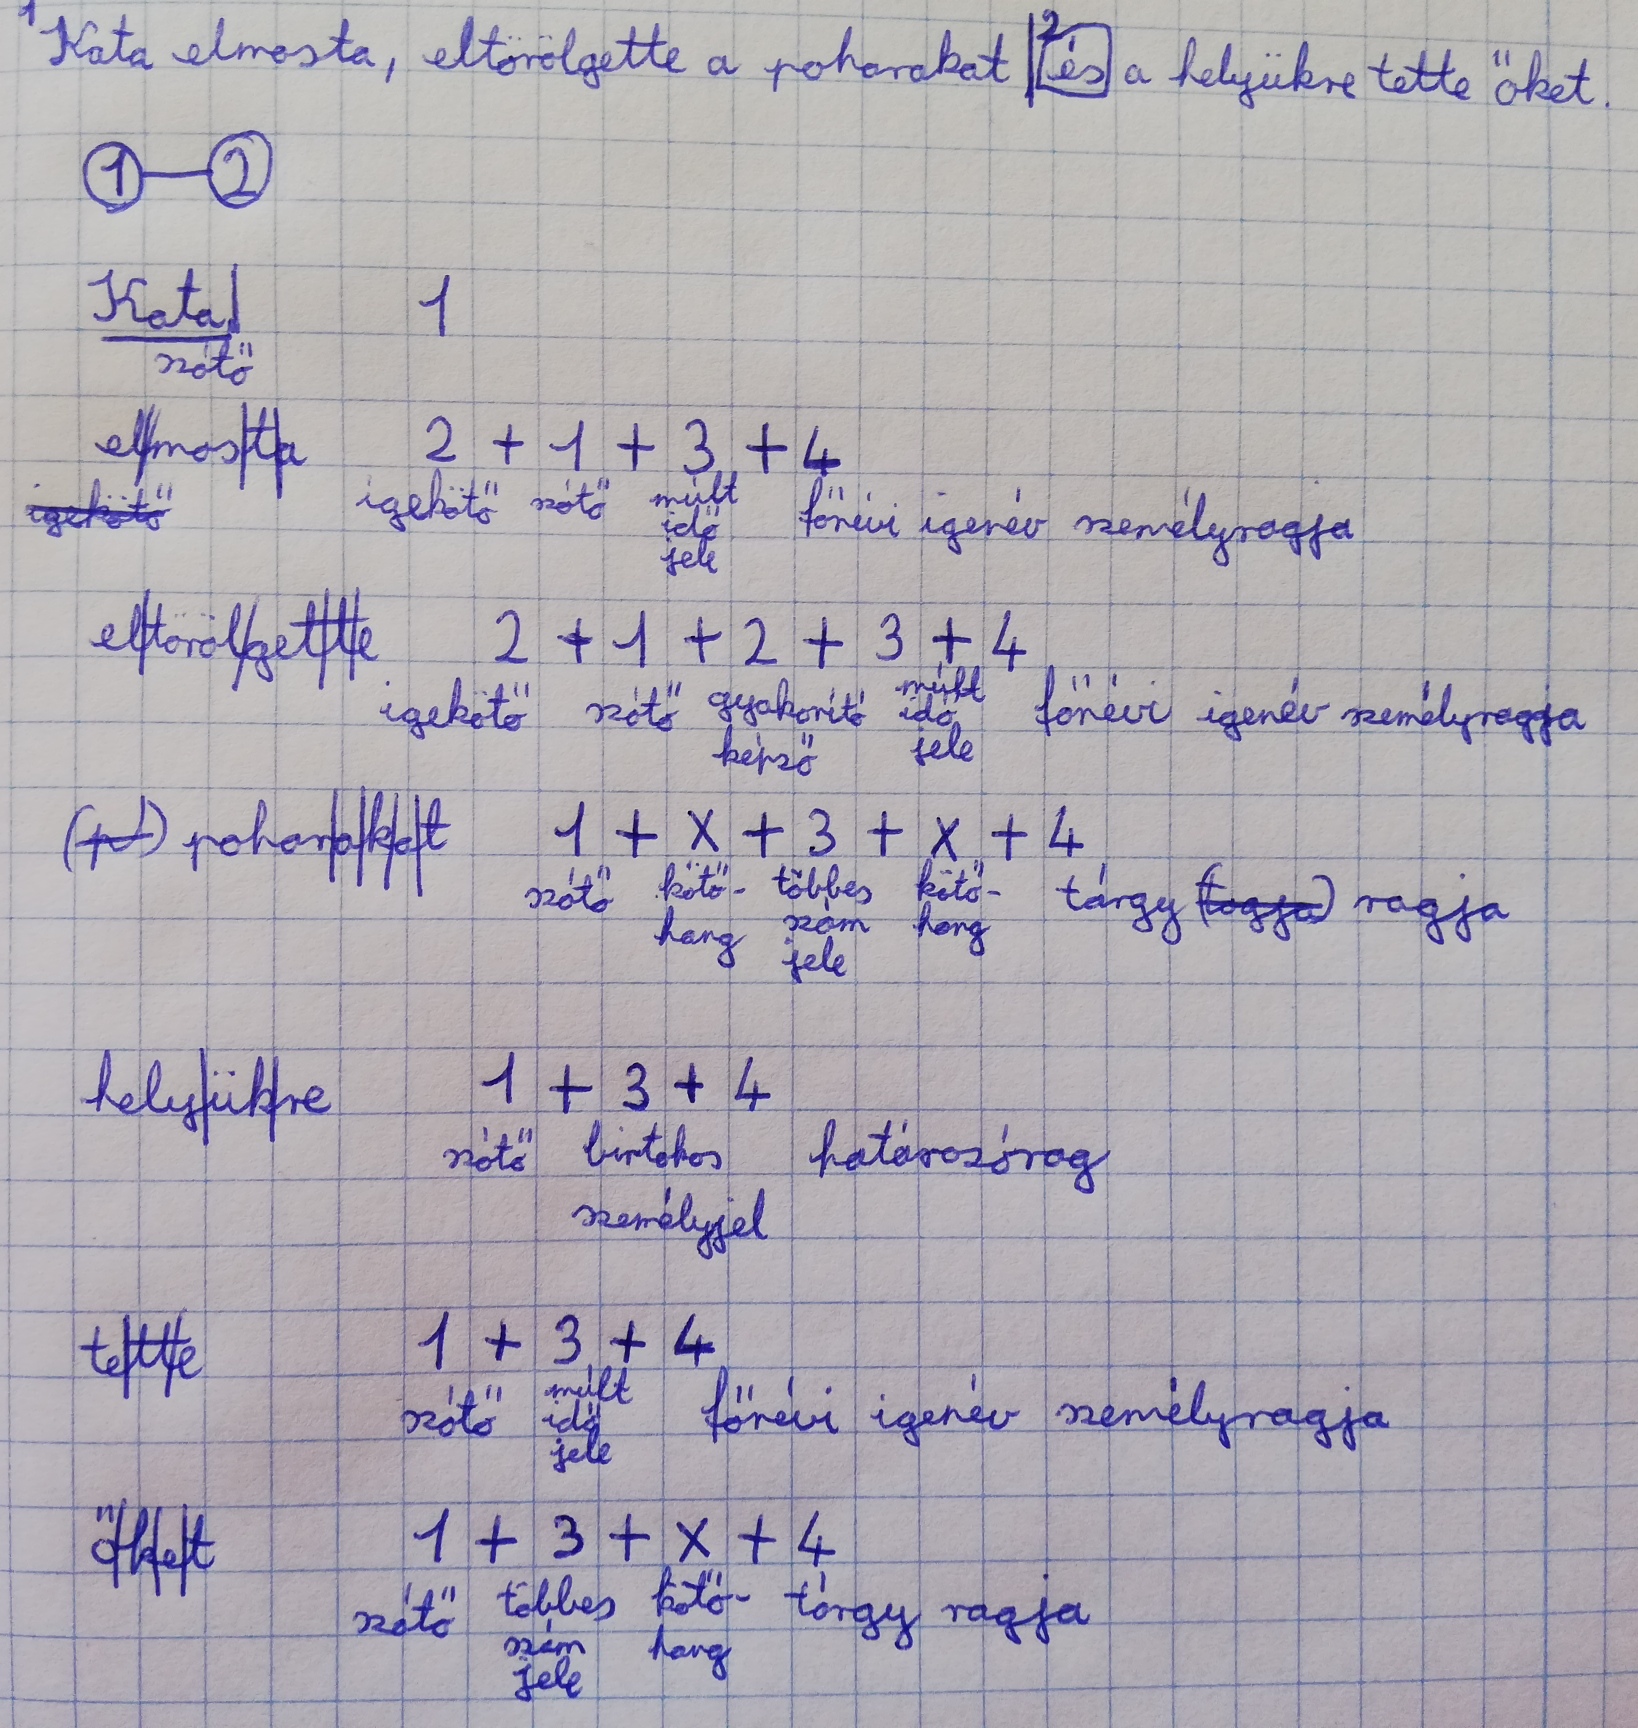 1 Kata elmosta, eltörölgette a poharakat | 2 és a helyükre tette őket.
1 — 2
Kata| 1
szótő
el|mos|t|a 2 + 1 + 3 + 4
igekötő igekötő szótő múlt idő jele főnévi igenév személyragja
el|töröl|get|t|e 2 + 1 + 2 + 3 + 4
igekötő szótő gyakorító képző múlt idő jele főnévi igenév személyragja
(pd) pohar|a|k|a|t 1 + x + 3 + x + 4
szótő kötő-hang többes szám jele kötő-hang tárgy (togja) ragja
hely|ük|re 1 + 3 + 4
szótő birtokos személyjel határozórag
te|tt|e 1 + 3 + 4
szótő múlt idő jele főnévi igenév személyragja
ő|k|e|t 1 + 3 + x + 4
szótő többes szám jele kötő-hang tárgy ragja